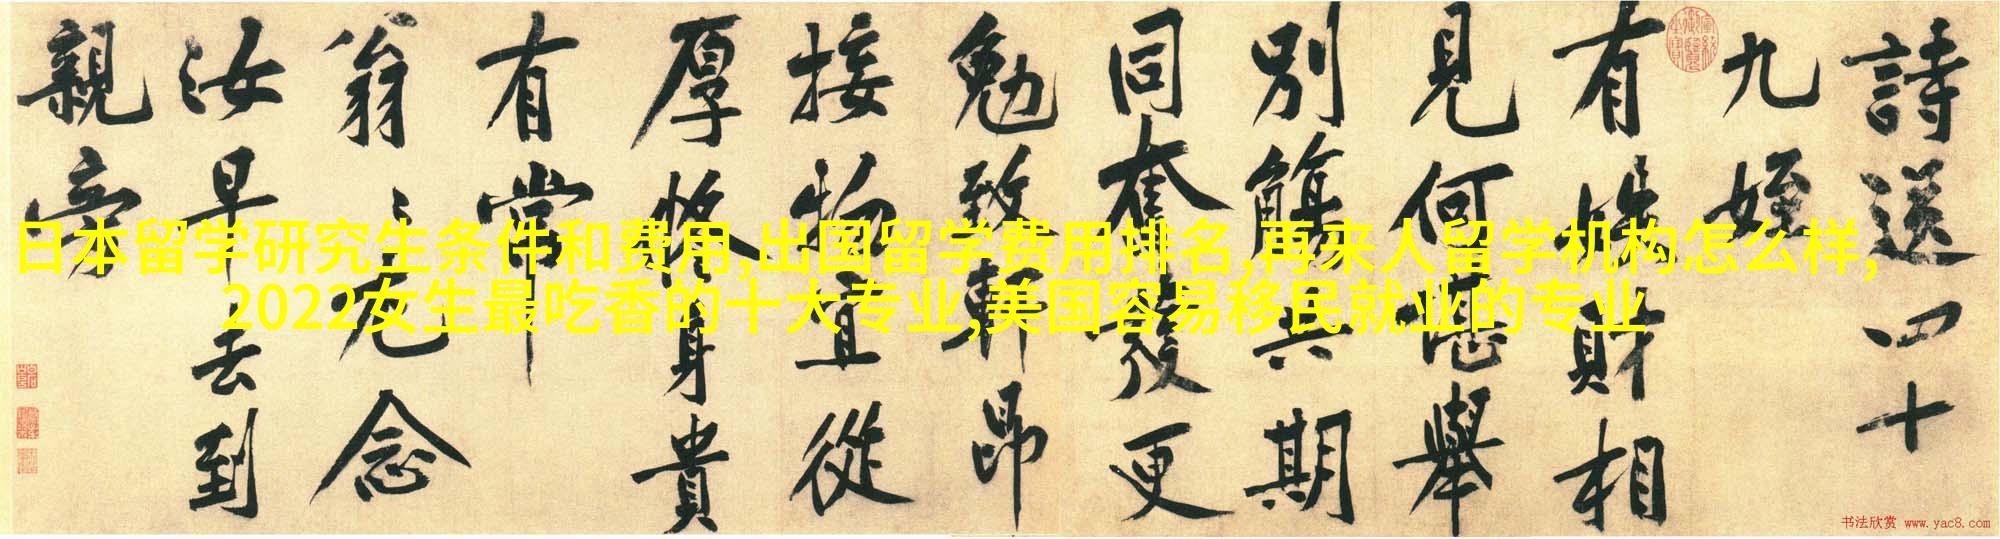 詩送四十
九姪
有惟財相
見何堪舉
別觴共期
同奮發更
勉致軒昂
接物宜從
厚修身貴
有常
翁〻尤念
汝早去到
親旁
日本留学研究生条件和费用,出国留学费用排名,再来人留学机构怎么样,
2022女生最吃香的十大专业,美国容易移民就业的专业
书法欣赏 www.yac8.com